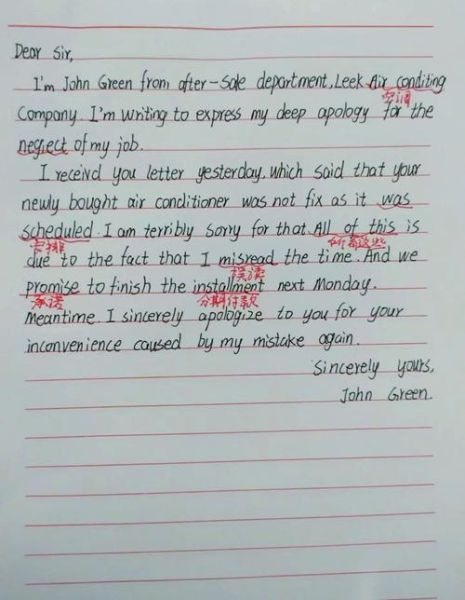 Dear Sir,
I'm John Green from after-sale department, Leek Air conditing
空调
Company. I'm writing to express my deep apology for the
neglect of my job.
I receivd you letter yesterday, which said that your
newly bought air conditioner was not fix as it was
scheduled. I am terribly sorry for that. All of this is
安排 所有这些
due to the fact that I misread the time. And we
误读
promise to finish the installment next Monday.
承诺 分期付款
Meantime. I sincerely apologize to you for your
inconvenience caused by my mistake again.
Sincerely yours,
John Green.